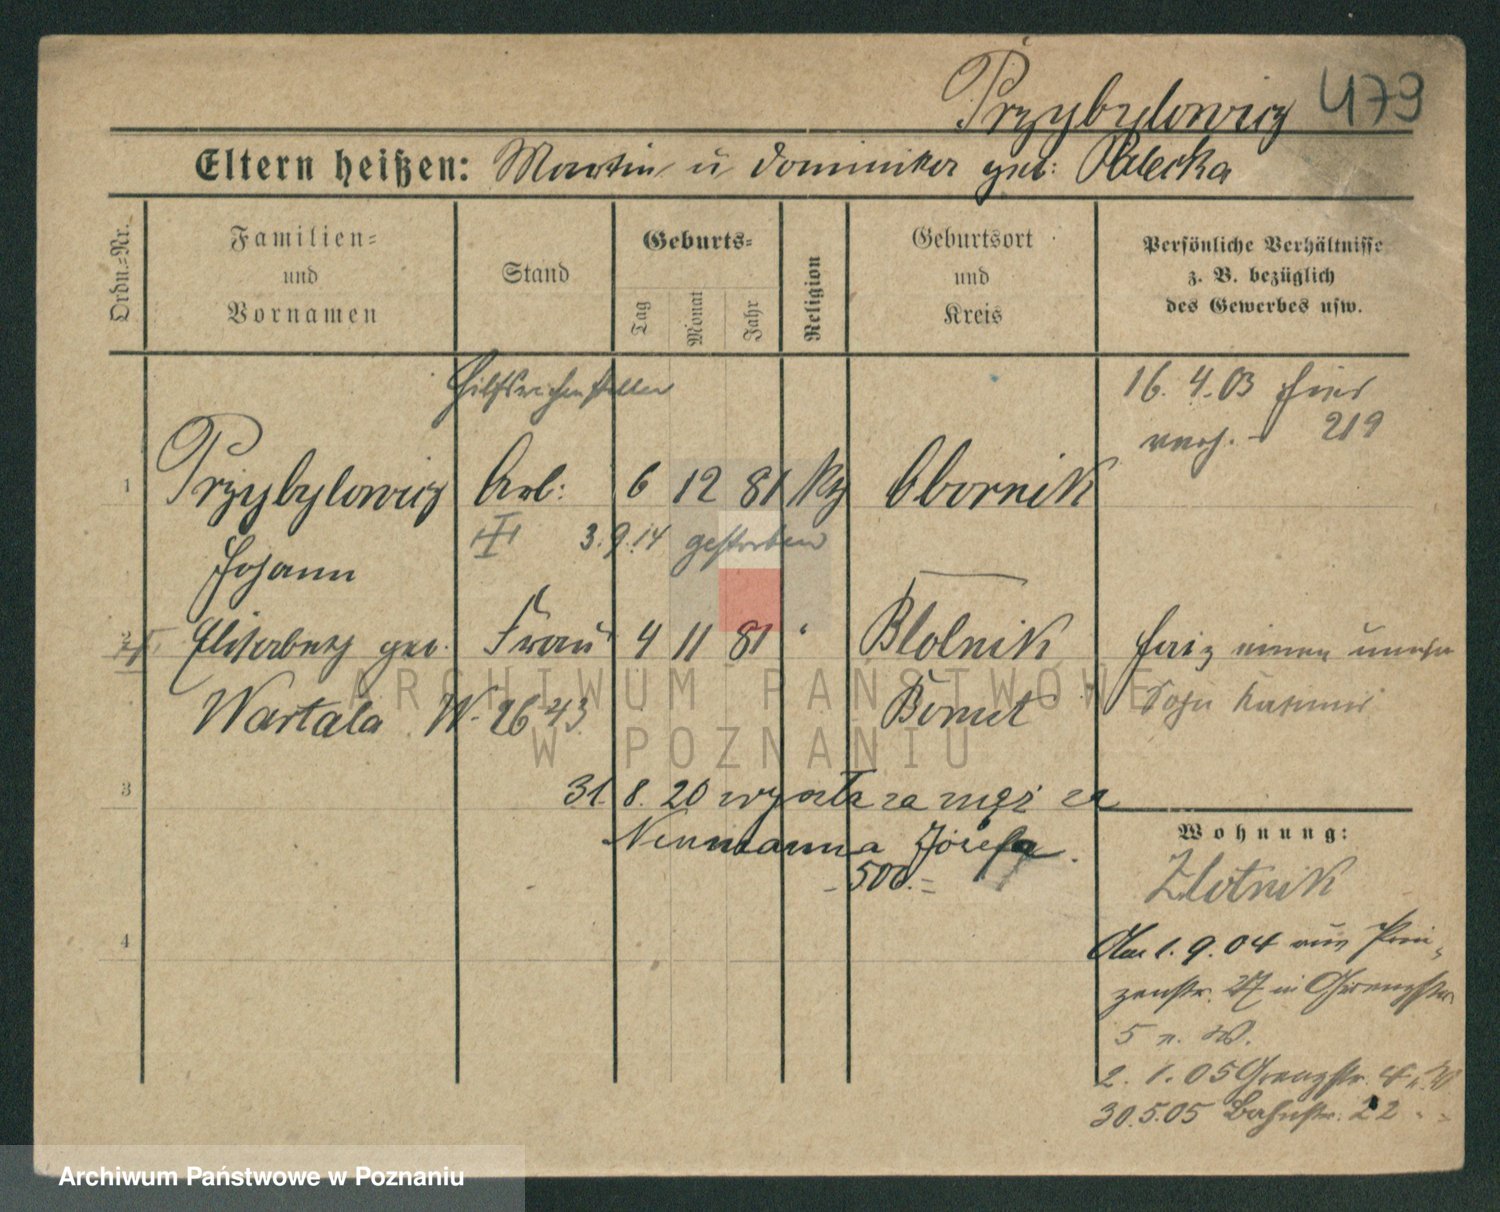 Przybylowicz 479
Eltern heißen: Martin u Dominika geb:
Ordn.=Nr.
Familien=
und
Vornamen
Stand
Geburts=
Tag
Monat
Jahr
Religion
Geburtsort
und
Kreis
Persönliche Verhältnisse
z. B. bezüglich
des Gewerbes usw.
Hilfsweichensteller
16. 4. 03 hier
219
1 Przybylowicz Arb: 6 12 81 Obornik
3.9.14 gestorben
Johann
2 Elisabeth geb. Frau 4 11 81 "
Wartala
ARCHIWUM PAŃSTWOWE
W POZNANIU
3
31. 8. 20 wyszła za mąż za
Neumanna Józefa.
- 500. =
Wohnung:
Zlotnik
4
Am 1. 9. 04 aus Prin-
zenstr. 27 in Grenzstr.
5 n. W.
2. 1. 05 Grenzstr. 4
30.5.05 Bahnstr. 22
Archiwum Państwowe w Poznaniu